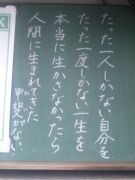 たった一人しかない自分を
たった一度しかない一生を
本当に生かさなかったら
人間に生まれてきた
甲斐がない